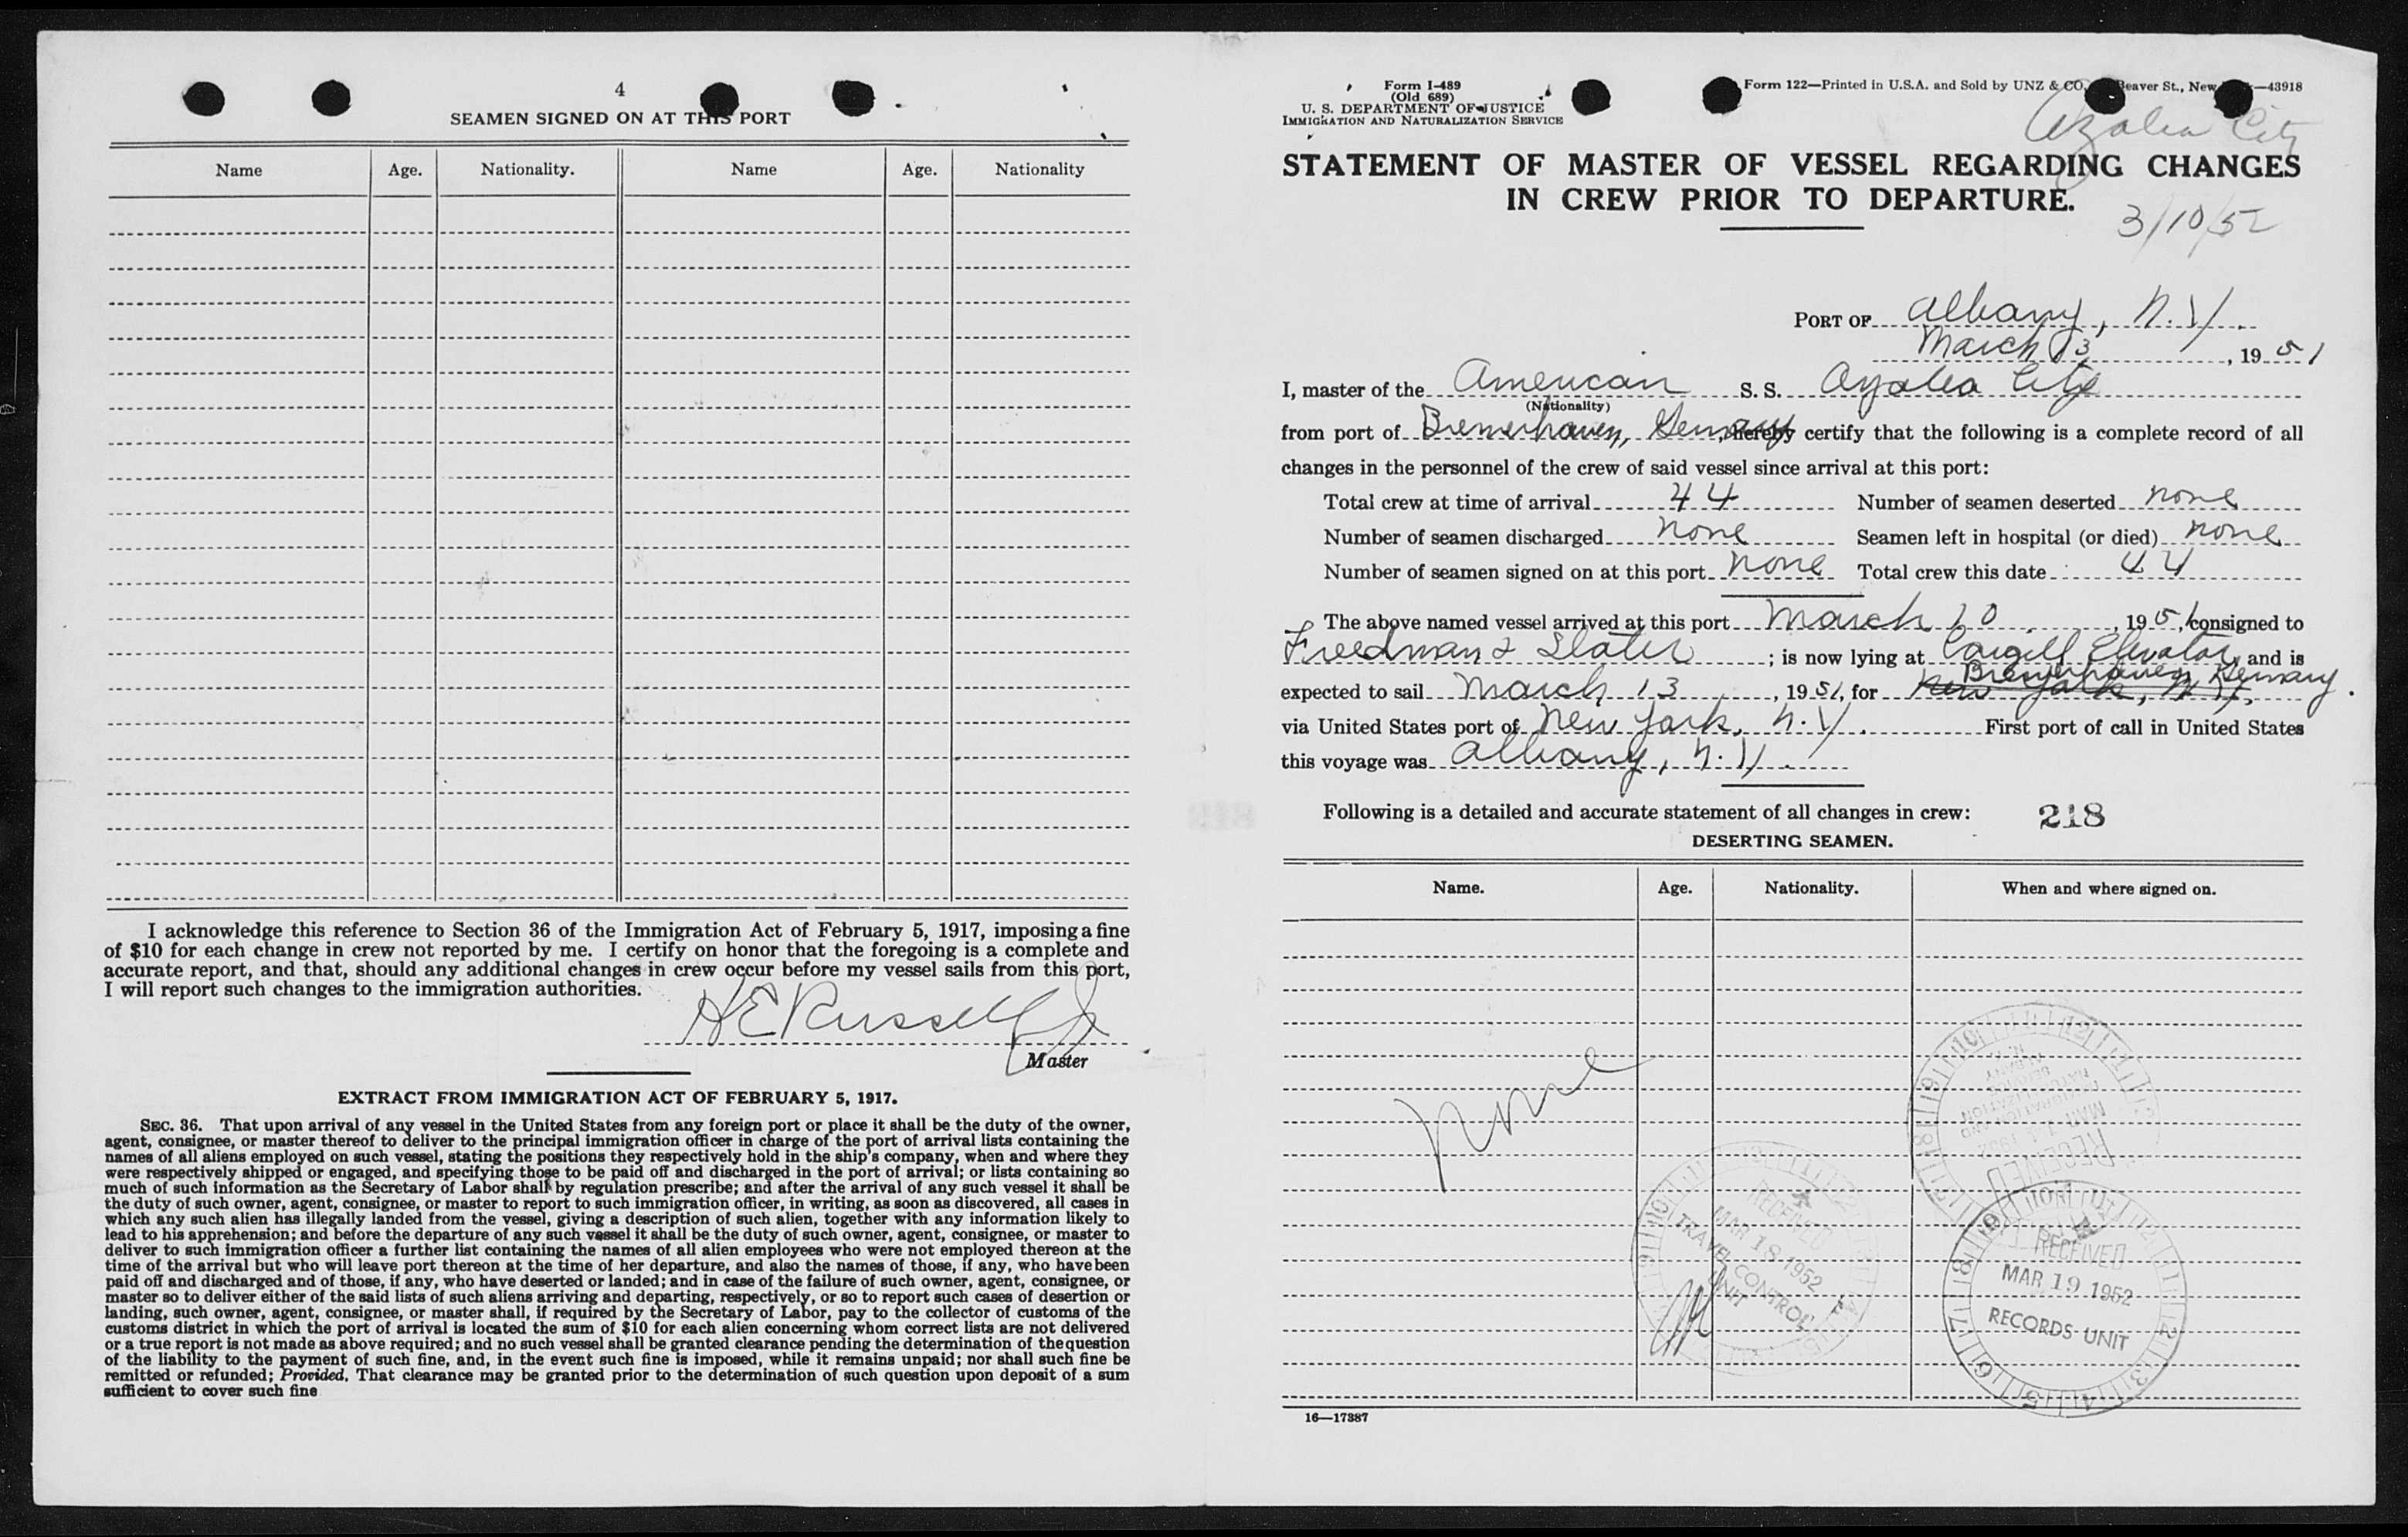 4
SEAMEN SIGNED ON AT THIS PORT
Name Age. Nationality. Name Age. Nationality
I acknowledge this reference to Section 36 of the Immigration Act of February 5, 1917, imposing a fine
of $10 for each change in crew not reported by me. I certify on honor that the foregoing is a complete and
accurate report, and that, should any additional changes in crew occur before my vessel sails from this port,
I will report such changes to the immigration authorities.
H E Russell Jr
Master
EXTRACT FROM IMMIGRATION ACT OF FEBRUARY 5, 1917.
SEC. 36. That upon arrival of any vessel in the United States from any foreign port or place it shall be the duty of the owner,
agent, consignee, or master thereof to deliver to the principal immigration officer in charge of the port of arrival lists containing the
names of all aliens employed on such vessel, stating the positions they respectively hold in the ship's company, when and where they
were respectively shipped or engaged, and specifying those to be paid off and discharged in the port of arrival; or lists containing so
much of such information as the Secretary of Labor shall by regulation prescribe; and after the arrival of any such vessel it shall be
the duty of such owner, agent, consignee, or master to report to such immigration officer, in writing, as soon as discovered, all cases in
which any such alien has illegally landed from the vessel, giving a description of such alien, together with any information likely to
lead to his apprehension; and before the departure of any such vessel it shall be the duty of such owner, agent, consignee, or master to
deliver to such immigration officer a further list containing the names of all alien employees who were not employed thereon at the
time of the arrival but who will leave port thereon at the time of her departure, and also the names of those, if any, who have been
paid off and discharged and of those, if any, who have deserted or landed; and in case of the failure of such owner, agent, consignee, or
master so to deliver either of the said lists of such aliens arriving and departing, respectively, or so to report such cases of desertion or
landing, such owner, agent, consignee, or master shall, if required by the Secretary of Labor, pay to the collector of customs of the
customs district in which the port of arrival is located the sum of $10 for each alien concerning whom correct lists are not delivered
or a true report is not made as above required; and no such vessel shall be granted clearance pending the determination of the question
of the liability to the payment of such fine, and, in the event such fine is imposed, while it remains unpaid; nor shall such fine be
remitted or refunded; Provided, That clearance may be granted prior to the determination of such question upon deposit of a sum
sufficient to cover such fine
Form I-489
(Old 689)
U. S. DEPARTMENT OF JUSTICE
IMMIGRATION AND NATURALIZATION SERVICE
Form 122—Printed in U.S.A. and Sold by UNZ & CO. Beaver St., New —43918
Azalea City
STATEMENT OF MASTER OF VESSEL REGARDING CHANGES
IN CREW PRIOR TO DEPARTURE.
3/10/52
PORT OF Albany, N.Y.
March 13, 1951
I, master of the American S. S. Azalea City
(Nationality)
from port of Bremerhaven, Germany, hereby certify that the following is a complete record of all
changes in the personnel of the crew of said vessel since arrival at this port:
Total crew at time of arrival 44 Number of seamen deserted none
Number of seamen discharged none Seamen left in hospital (or died) none
Number of seamen signed on at this port none Total crew this date 44
The above named vessel arrived at this port March 10, 1951, consigned to
Freedman & Slater; is now lying at Cargill Elevator, and is
Bremerhaven, Germany.
expected to sail March 13, 1951, for New York, N.Y.
via United States port of New York, N.Y. First port of call in United States
this voyage was Albany, N.Y.
Following is a detailed and accurate statement of all changes in crew: 218
DESERTING SEAMEN.
Name. Age. Nationality. When and where signed on.
None
RECEIVED
RECEIVED
MAR 18 1952
TRAVEL CONTROL
UNIT
RECEIVED
MAR 19 1952
RECORDS UNIT
16—17387